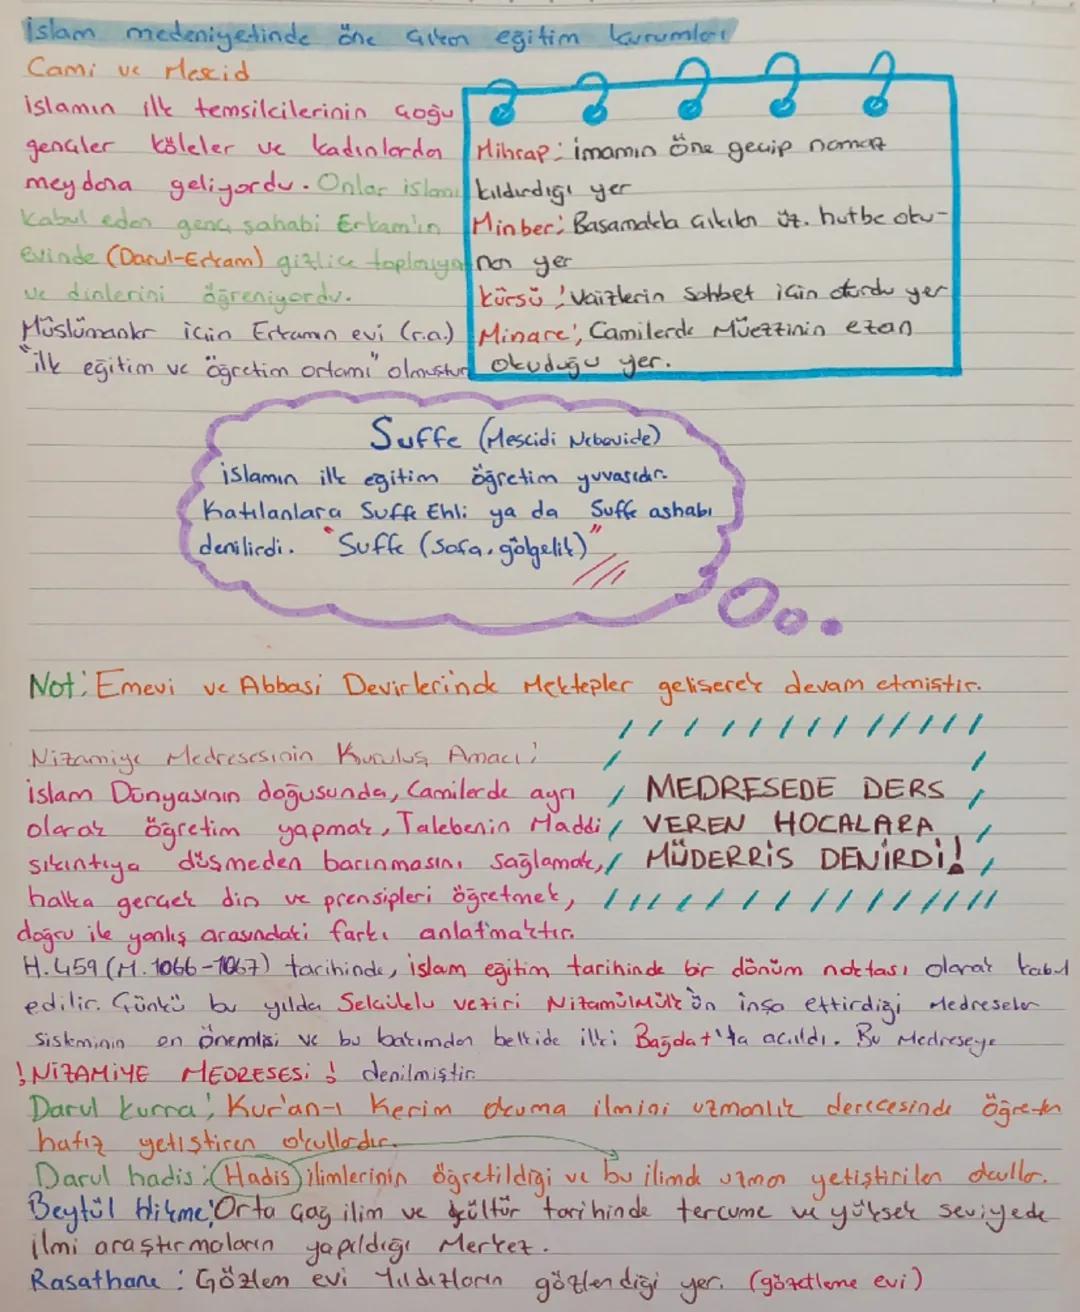 İslam medeniyetinde öne çıkan eğitim kurumları
Cami ve Mescid
islamın ilk temsilcilerinin çoğu
gençler köleler ve kadınlarda
meydana geliyordu. Onlar islamı
kabul eden genç sahabi Erkam'ın
evinde (Darul-Erkam) gizlice toplanıyor
ve dinlerini öğreniyordu.
Müslümanlar için Erkamın evi (r.a.)
"ilk eğitim ve öğretim ortamı" olmuştur
Mihrap: imamın öne geçip namaz
kıldırdığı yer
Minber: Basamakla çıkılan üz. hutbe oku-
nan yer
kürsü: Vaizlerin Sohbet için oturdu yer
Minare: Camilerde Müezzinin ezan
okuduğu yer.
Suffe (Mescidi Nebevide)
islamın ilk egitim öğretim yuvasıdır.
Katılanlara Suffe Ehli ya da Suffe ashabı
denilirdi. "Suffe (Sofa, gölgelik)"
Not: Emevi ve Abbasi Devirlerinde Mektepler gelişerek devam etmiştir.
Nizamiye Medresesinin Kuruluş Amacı:
islam Dünyasının doğusunda, Camilerde ayrı
olarak öğretim yapmak, Talebenin Maddi
sıkıntıya düşmeden barınmasını sağlamak,
halka gerçek din ve prensipleri öğretmek,
doğru ile yanlış arasındaki farkı anlatmaktır.
MEDRESEDE DERS
VEREN HOCALARA
MÜDERRİS DENİRDİ!
H.459 (M.1066-1067) tarihinde, islam eğitim tarihinde bir dönüm noktası olarak kabul
edilir. Çünkü bu yılda Selçuklu veziri Nizamülmülk'ün inşa ettirdiği Medreseler
Sisteminin en önemlisi ve bu bakımdan belkide ilki Bağdat'ta açıldı. Bu Medreseye
! NİZAMİYE MEDRESESİ ! denilmiştir.
Darul kurra: Kur'an-ı Kerim okuma ilmini uzmanlık derecesinde öğreten
hafız yetiştiren okullardır.
Darul hadis: Hadis ilimlerinin öğretildiği ve bu ilimde uzman yetiştirilen okullar.
Beytül Hikme: Orta Çağ ilim ve kültür tarihinde tercume ve yüksek seviyede
ilmi araştırmaların yapıldığı Merkez.
Rasathane: Gözlem evi Yıldızların gözlendiği yer. (gözetleme evi)